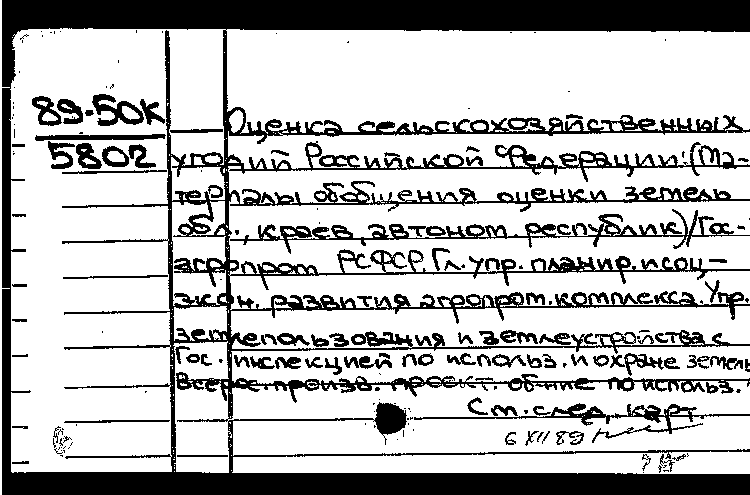 89-50К
5802
Оценка сельскохозяйственных
угодий Российской Федерации: (Ма-
териалы обобщения оценки земель
обл., краев, автоном. республик)/Гос-
агропром РСФСР. Гл. упр. планир. и соц.-
экон. развития агропром. комплекса. Упр.
землепользования и землеустройства с
Гос. инспекцией по использ. и охране земель
Всерос. произв. проект. об-ние по использ.
См. след. карт.
6 XII 89